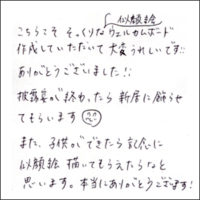 似顔絵
こちらこそ そっくりなウェルカムボード
作成していただいて大変うれしいです!!
ありがとうございました!!
披露宴が終わったら 新居に飾らせ
てもらいます
また、子供ができたら記念に
似顔絵 描いてもらえたらなと
思います。本当にありがとうございます!